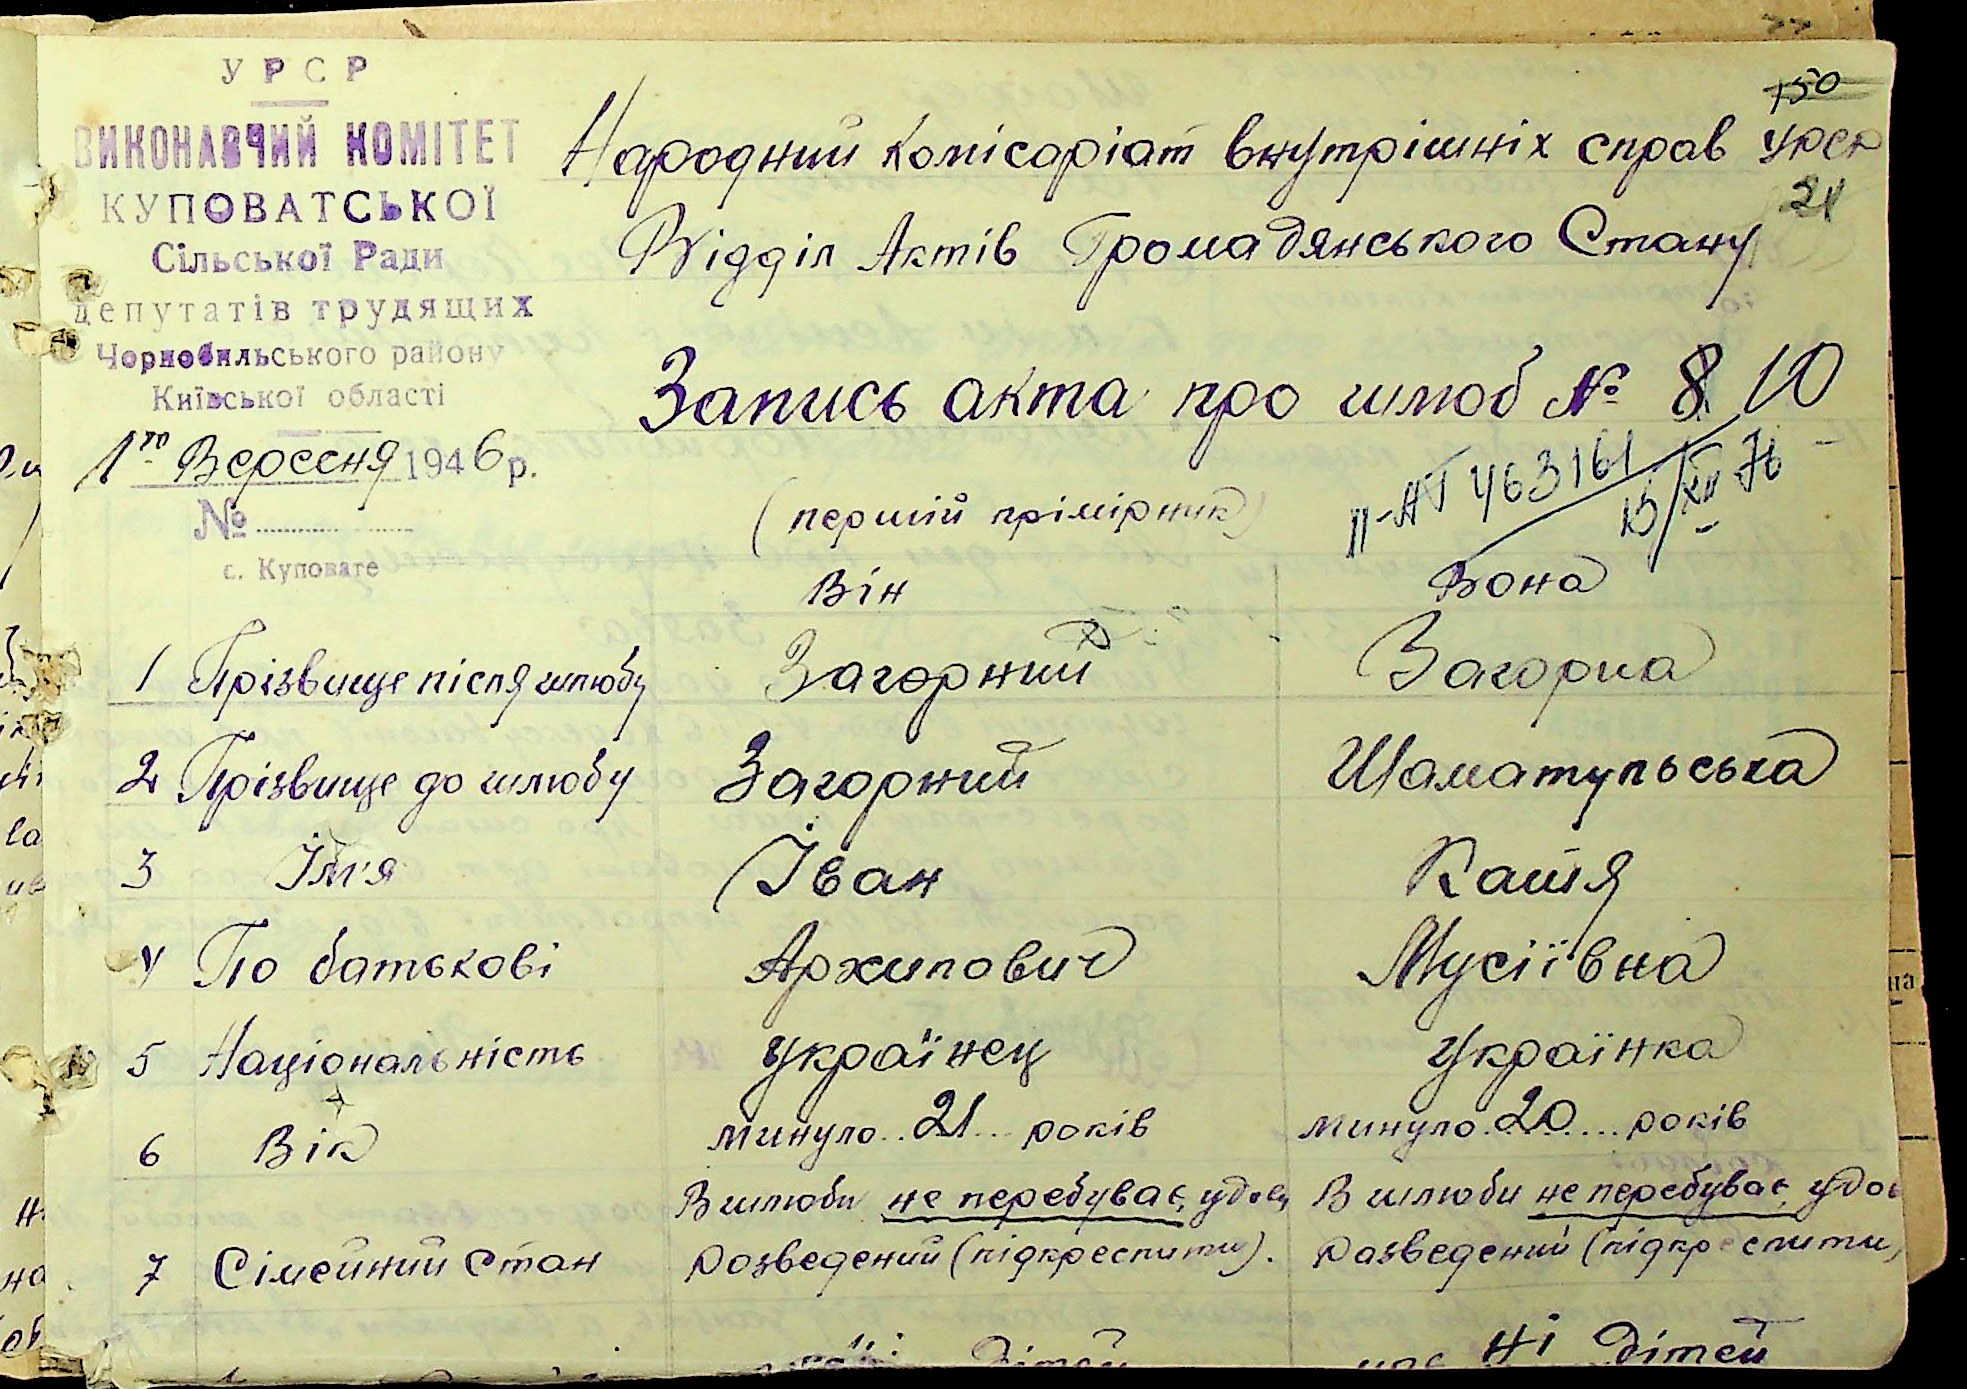 УРСР
ВИКОНАВЧИЙ КОМІТЕТ
КУПОВАТСЬКОЇ
Сільської Ради
депутатів трудящих
Чорнобильського району
Київської області
1го Вересня 1946 р.
№
с. Куповате
150
Народний Комісаріат внутрішніх справ УРСР
21
Відділ Актів Громадянського Стану
Запись акта про шлюб № 8 10
(перший прімірник)
II-АТ 463161
13/XII 76
Він Вона
1 Прізвище після шлюбу Загорний Загорна
2 Прізвище до шлюбу Загорний Шаматульська
3 Ім'я Іван Катя
4 По батькові Архипович Мусіївна
5 Національність Українец Українка
6 Вік минуло 21 років минуло 20 років
В шлюби не перебуває, удовц В шлюби не перебуває, удов
7 Сімейний Стан Розведений (підкреслити). Разведений (підкреслити)
ні дітей